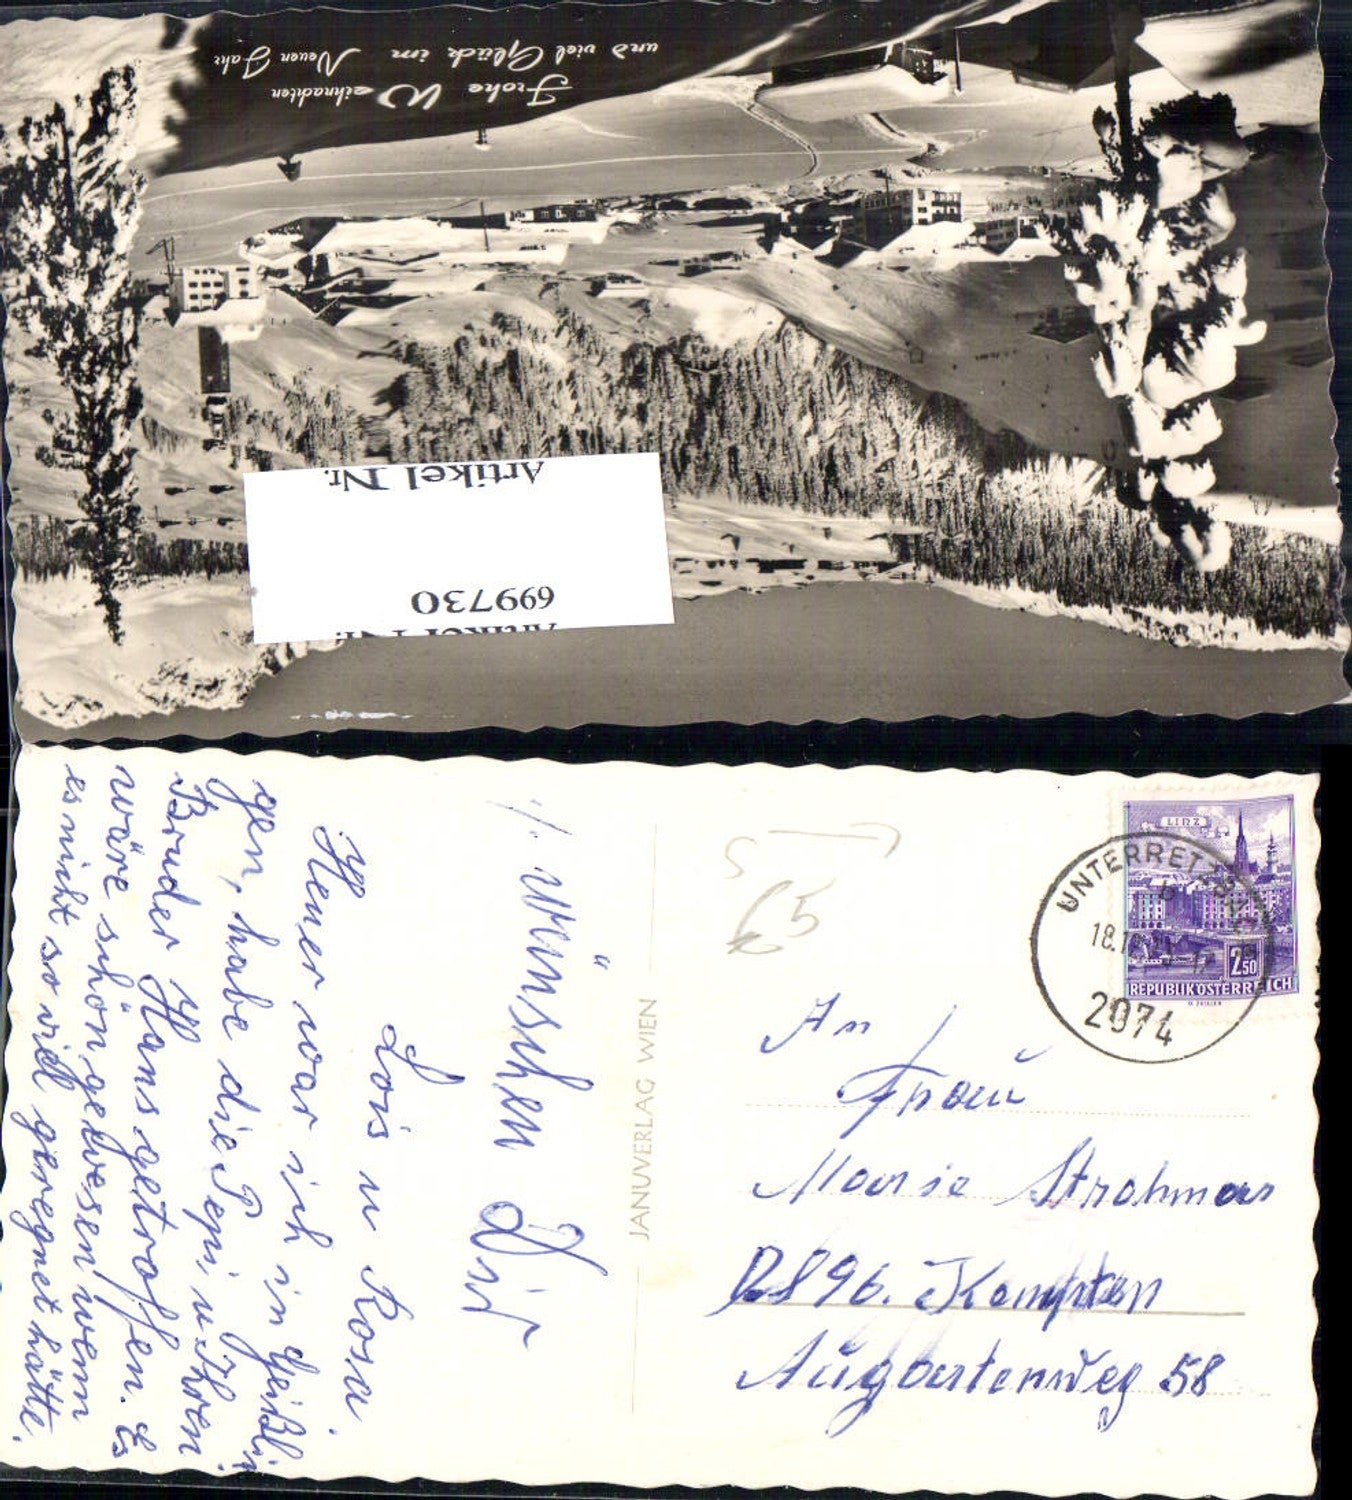 Frohe Weihnachten
und viel Glück im Neuen Jahr
Artikel Nr.
699730
Artikel Nr.
./. wünschen Dir
Lois u Rosa.
Heuer war ich in Geißlin
gen, habe die Pepi, u Ihren
Bruder Hans getroffen. Es
wäre schön gewesen wenn
es nicht so viel geregnet hätte.
JANUVERLAG WIEN
65
LINZ
2.50
REPUBLIK ÖSTERREICH
UNTERRETZBACH
b
2074
An
Frau
Marie Strohmar
D 896. Kempten
Augartenweg 58